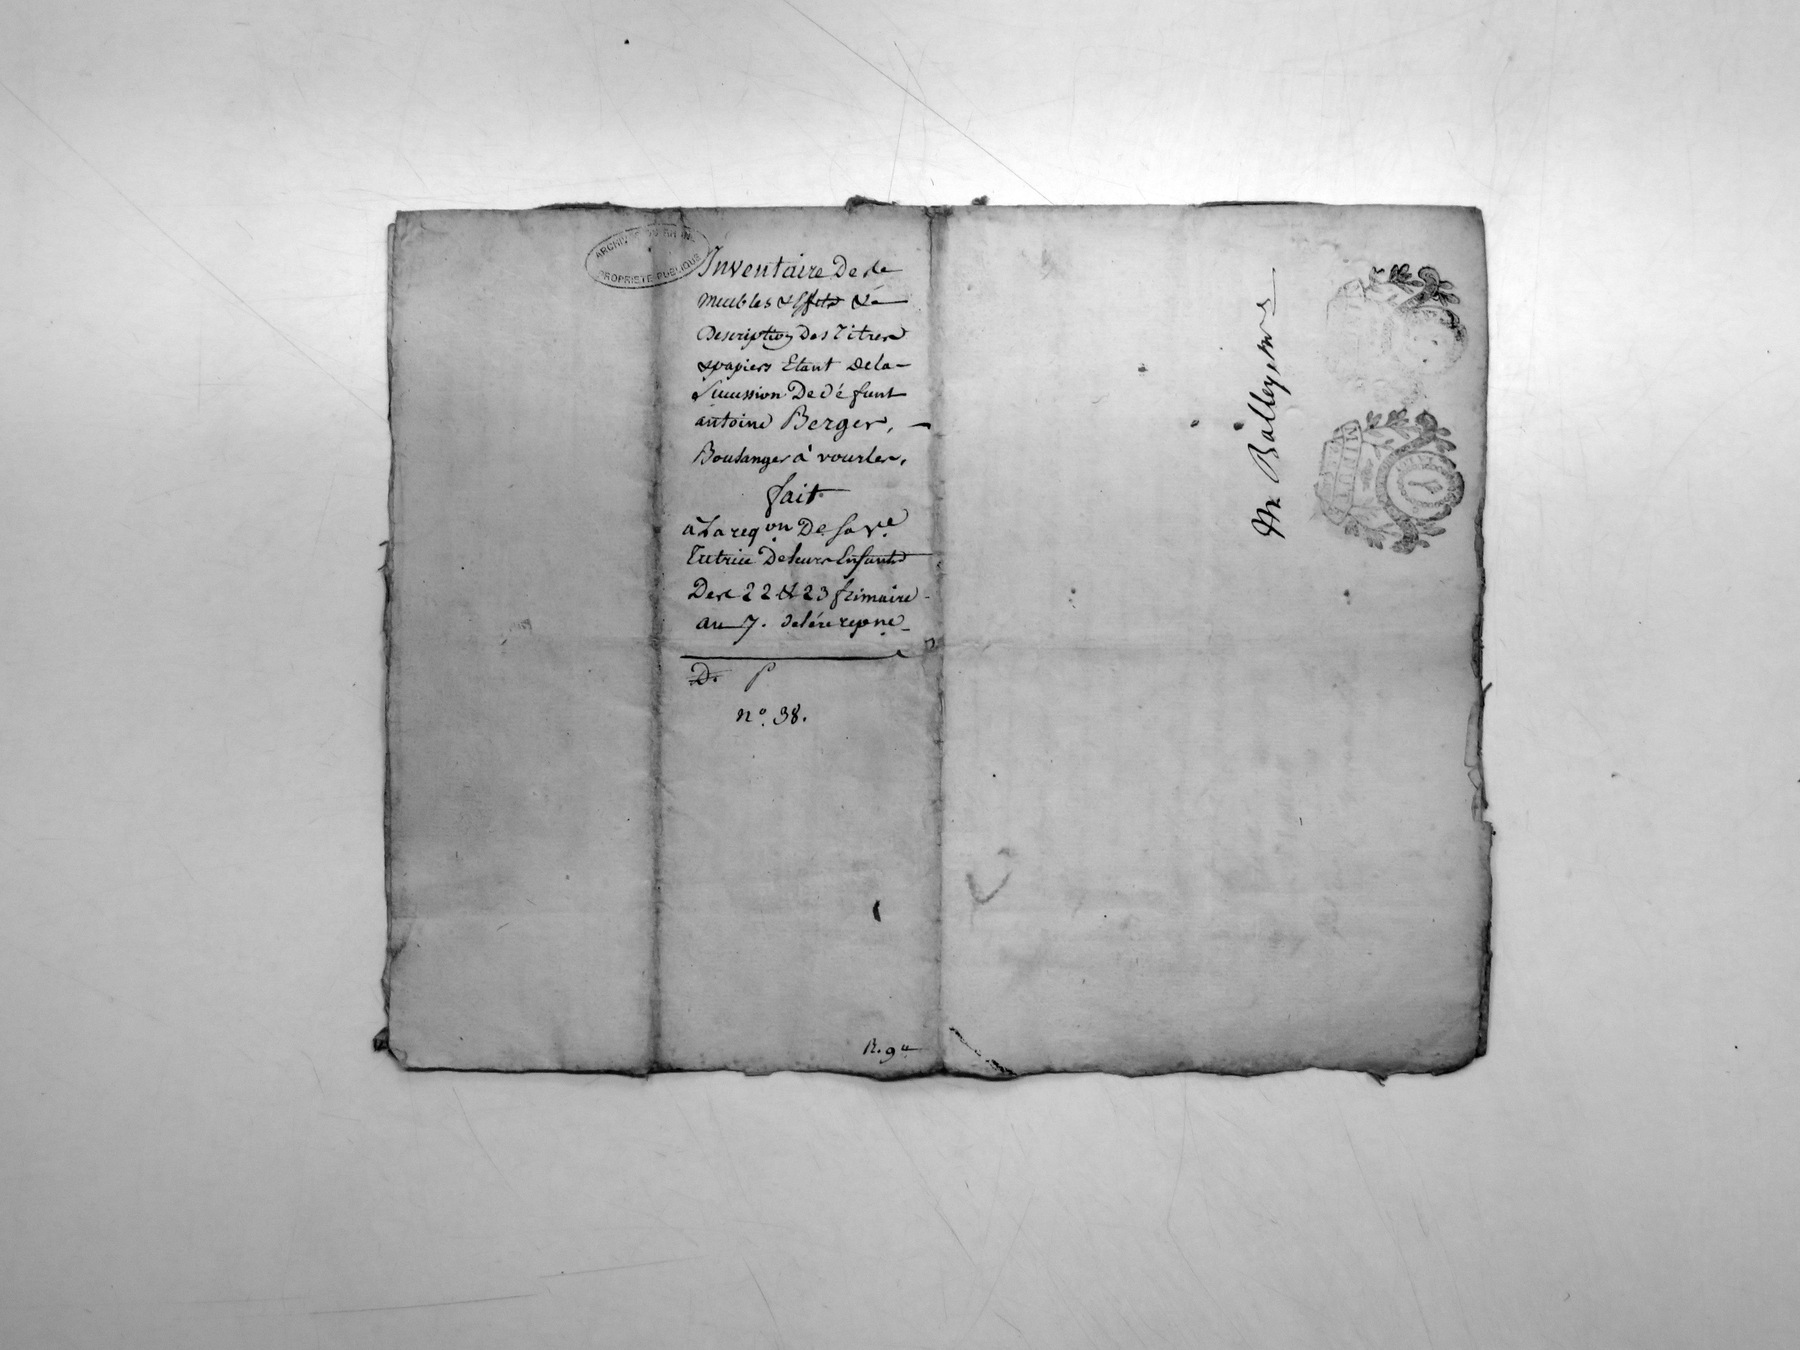 ARCHIVES DU RHONE
PROPRIETE PUBLIQUE
Inventaire De de
meubles & Effets &a
Description Des Titres
& papiers Etant dela
Succession De défunt
antoine Berger,
Boulanger à vourles,
fait
à La reqon. De Sa ve.
Tutrice De leurs Enfants
Des 22 & 23 frimaire
au 7. de l'ére repne
D.
n.° 38.
R. 9
Mr Balleyd